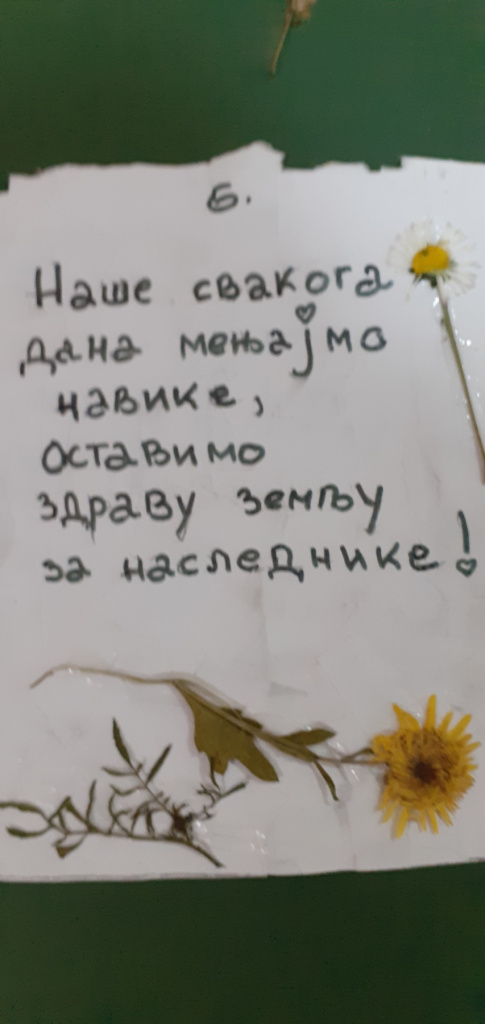 5.
Наше свакога
дана мењајмо
навике,
оставимо
здраву земљу
за наследнике!